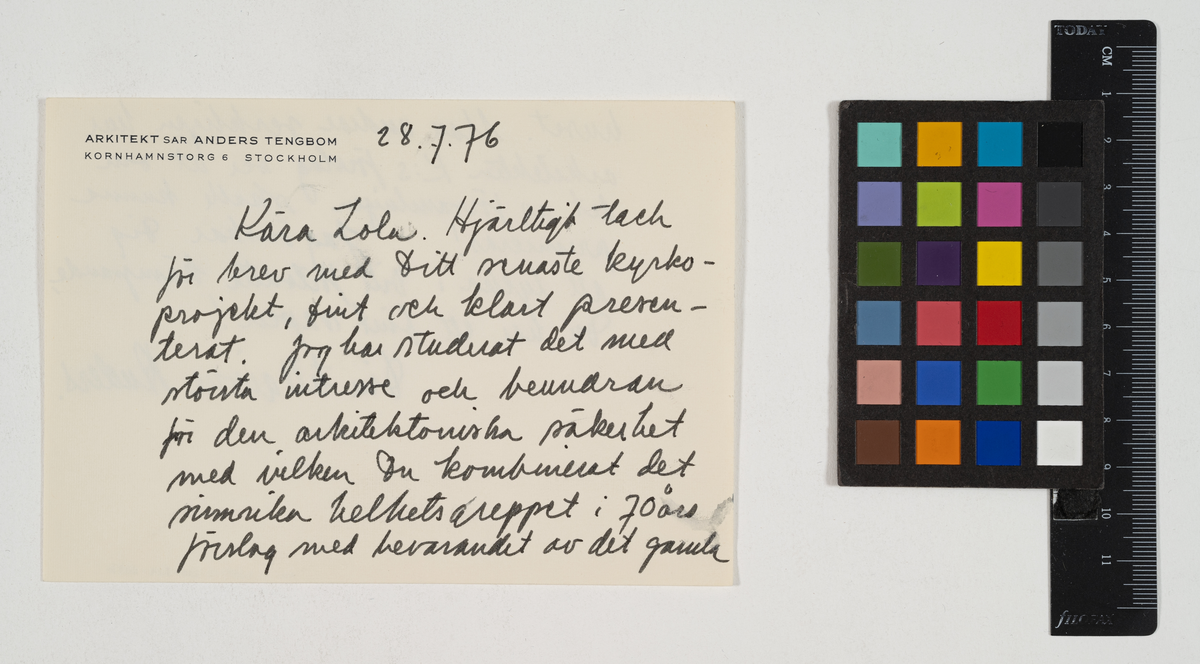 ARKITEKT SAR ANDERS TENGBOM
KORNHAMNSTORG 6 STOCKHOLM
28.7.76
Kära Lola. Hjärtligt tack
för brev med Ditt senaste kyrko-
projekt, fint och klart presen-
terat. Jag har studerat det med
största intresse och beundran
för den arkitektoniska säkerhet
med vilken Du kombinerat det
sinnrika helhetsgreppet i 70 års
förslag med bevarandet av det gamla
TODAY
CM
1
2
3
4
5
6
7
8
9
10
11